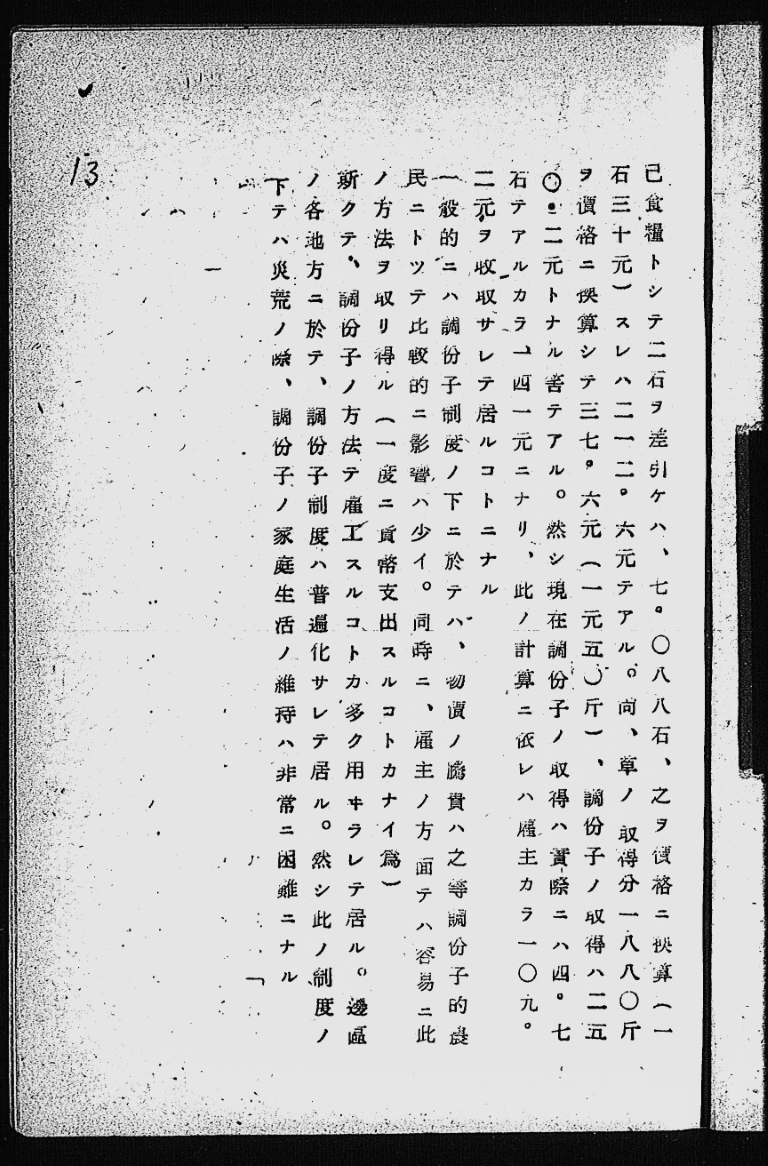 己食糧トシテ二石ヲ差引ケハ、七。〇八八石、之ヲ價格ニ換算(一
石三十元)スレハ二一二。六元テアル。尚、草ノ取得分一八八〇斤
ヲ價格ニ換算シテ三七。六元(一元五〇斤)、調份子ノ取得ハ二五
〇。二元トナル筈テアル。然シ現在調份子ノ取得ハ實際ニハ四。七
石テアルカラ一四一元ニナリ、此ノ計算ニ依レハ雇主カラ一〇九。
二元ヲ收取サレテ居ルコトニナル
一般的ニハ調份子制度ノ下ニ於テハ、物價ノ騰貴ハ之等調份子的農
民ニトツテ比較的ニ影響ハ少イ。同時ニ、雇主ノ方面テハ容易ニ此
ノ方法ヲ取リ得ル(一度ニ貨幣支出スルコトカナイ爲)
斯クテ、調份子ノ方法テ雇工スルコトカ多ク用ヰラレテ居ル。邊區
ノ各地方ニ於テ、調份子制度ハ普遍化サレテ居ル。然シ此ノ制度ノ
下テハ災荒ノ際、調份子ノ家庭生活ノ維持ハ非常ニ困難ニナル
13